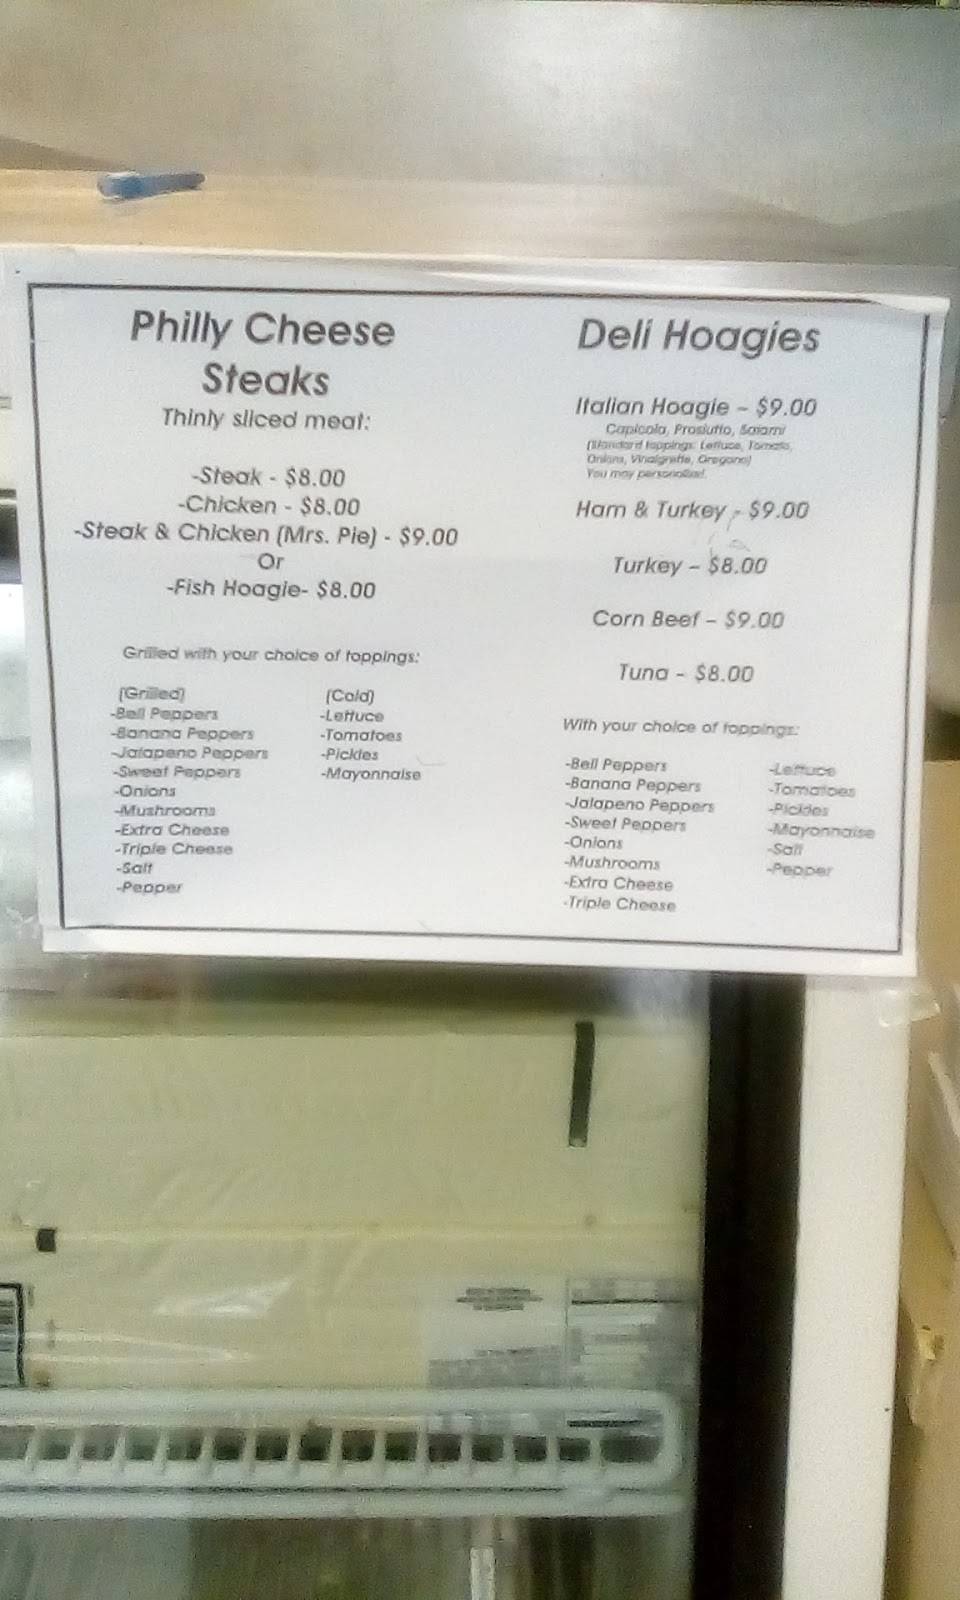 Philly Cheese
Steaks
Thinly sliced meat:
-Steak - $8.00
-Chicken - $8.00
-Steak & Chicken (Mrs. Pie) - $9.00
Or
-Fish Hoagie- $8.00
Grilled with your choice of toppings:
(Grilled)
-Bell Peppers
-Banana Peppers
-Jalapeno Peppers
-Sweet Peppers
-Onions
-Mushrooms
-Extra Cheese
-Triple Cheese
-Salt
-Pepper
(Cold)
-Lettuce
-Tomatoes
-Pickles
-Mayonnaise
Deli Hoagies
Italian Hoagie - $9.00
Capicola, Prosiutto, Salami
(Standard toppings: Lettuce, Tomato,
Onions, Vinaigrette, Oregano)
You may personalize!
Ham & Turkey - $9.00
Turkey – $8.00
Corn Beef – $9.00
Tuna - $8.00
With your choice of toppings:
-Bell Peppers
-Banana Peppers
-Jalapeno Peppers
-Sweet Peppers
-Onions
-Mushrooms
-Extra Cheese
-Triple Cheese
-Lettuce
-Tomatoes
-Pickles
-Mayonnaise
-Salt
-Pepper